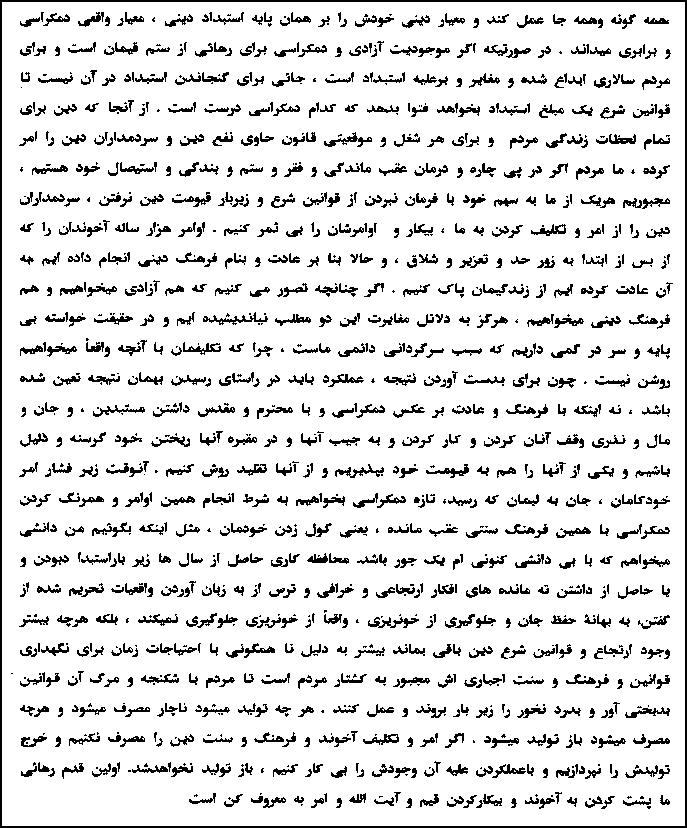 همه گونه وهمه جا عمل کند و معیار دینی خودش را بر همان پایه استبداد دینی ، معیار واقعی دمکراسی
و برابری میداند . در صورتیکه اگر موجودیت آزادی و دمکراسی برای رهائی از ستم قیمان است و برای
مردم سالاری ابداع شده و مغایر و برعلیه استبداد است ، جائی برای گنجاندن استبداد در آن نیست تا
قوانین شرع یک مبلغ استبداد بخواهد فتوا بدهد که کدام دمکراسی درست است . از آنجا که دین برای
تمام لحظات زندگی مردم و برای هر شغل و موقعیتی قانون حاوی نفع دین و سردمداران دین را امر
کرده ، ما مردم اگر در پی چاره و درمان عقب ماندگی و فقر و ستم و بندگی و استیصال خود هستیم ،
مجبوریم هریک از ما به سهم خود با فرمان نبردن از قوانین شرع و زیربار قیومت دین نرفتن ، سردمداران
دین را از امر و تکلیف کردن به ما ، بیکار و اوامرشان را بی ثمر کنیم . اوامر هزار ساله آخوندان را که
از بس از ابتدا به زور حد و تعزیر و شلاق ، و حالا بنا بر عادت و بنام فرهنگ دینی انجام داده ایم به
آن عادت کرده ایم از زندگیمان پاک کنیم . اگر چنانچه تصور می کنیم که هم آزادی میخواهیم و هم
فرهنگ دینی میخواهیم ، هرگز به دلائل مغایرت این دو مطلب نیاندیشیده ایم و در حقیقت خواسته بی
پایه و سر در گمی داریم که سبب سرگردانی دائمی ماست ، چرا که تکلیفمان با آنچه واقعاً میخواهیم
روشن نیست . چون برای بدست آوردن نتیجه ، عملکرد باید در راستای رسیدن بهمان نتیجه تعین شده
باشد ، نه اینکه با فرهنگ و عادت بر عکس دمکراسی و با محترم و مقدس داشتن مستبدین ، و جان و
مال و نذری وقف آنان کردن و کار کردن و به جیب آنها و در مقبره آنها ریختن خود گرسنه و ذلیل
باشیم و یکی از آنها را هم به قیومت خود بپذیریم و از آنها تقلید روش کنیم . آنوقت زیر فشار امر
خودکامان ، جان به لبمان که رسید، تازه دمکراسی بخواهیم به شرط انجام همین اوامر و همرنگ کردن
دمکراسی با همین فرهنگ سنتی عقب مانده ، یعنی گول زدن خودمان ، مثل اینکه بگوئیم من دانشی
میخواهم که با بی دانشی کنونی ام یک جور باشد. محافظه کاری حاصل از سال ها زیر باراستبدا دبودن و
یا حاصل از داشتن ته مانده های افکار ارتجاعی و خرافی و ترس از به زبان آوردن واقعیات تحریم شده از
گفتن، به بهانهٔ حفظ جان و جلوگیری از خونریزی ، واقعاً از خونریزی جلوگیری نمیکند ، بلکه هرچه بیشتر
وجود ارتجاع و قوانین شرع دین باقی بماند بیشتر به دلیل نا همگونی با احتیاجات زمان برای نگهداری
قوانین و فرهنگ و سنت اجباری اش مجبور به کشتار مردم است تا مردم با شکنجه و مرگ آن قوانین
بدبختی آور و بدرد نخور را زیر بار بروند و عمل کنند . هر چه تولید میشود ناچار مصرف میشود و هرچه
مصرف میشود باز تولید میشود . اگر امر و تکلیف آخوند و فرهنگ و سنت دین را مصرف نکنیم و خرج
تولیدش را نپردازیم و باعملکردن علیه آن وجودش را بی کار کنیم ، باز تولید نخواهدشد. اولین قدم رهائی
ما پشت کردن به آخوند و بیکارکردن قیم و آیت الله و امر به معروف کن است